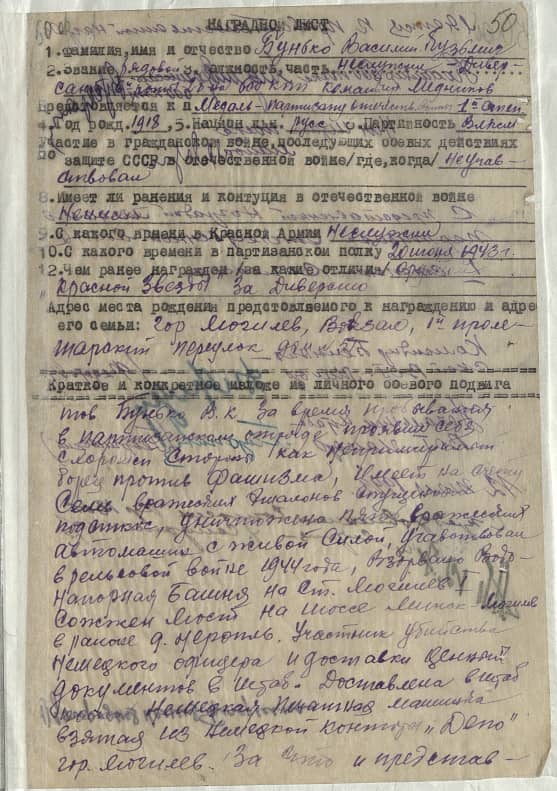 50
НАГРАДНОЙ ЛИСТ
1. Фамилия, имя и отчество Бунько Василий Кузьмич
2. Звание Рядовой 3. должность, часть Неслужил - Дивер-
Представляется к п Медаль - партизану отечеств. 1й степ
4. Год рожд. 1918, 5. Национ. Русс 6. Партийность Влксм
Участие в гражданской войне, последующих боевых действиях
по защите СССР в отечественной войне /где, когда/ Неучав-
ствовал
8. Имеет ли ранения и контуции в отечественной войне
Неимеет
9. С какого времени в Красной Армии Неслужил
10. С какого времени в партизанском полку 20 июня 1943 г.
12. Чем ранее награжден /за какие отличия/
Красной Звезды" За Диверсию
Адрес места рождения представляемого к награждению и адрес
его семьи: Гор Могилев, 1й проле-
тарский переулок
Краткое и конкретное изложе из личного боевого подвига
тов Бунько В.К. За время пребывания
в партизанском отряде проявил себя
с хорошей Стороны как непримиримый
борец против Фашизма, Имеет на счету
Семь вражеских Эшалонов спущеных
под откос, уничтожена пять вражеских
автомашин с живой Силой, Учавствовал
в рельсовой войне 1944 года, Взорвано Водо-
напорная Башня на Ст. Могилев I
Сожжен Мост на шоссе Минск - Могилев
в районе д. Участник убийства
Немецкого офицера и доставки ценных
документов в штаб. Доставлена в штаб
Немецкая Печатная машинка
взятая из Немецкой конторы "Депо"
гор. Могилев. За что и представ-